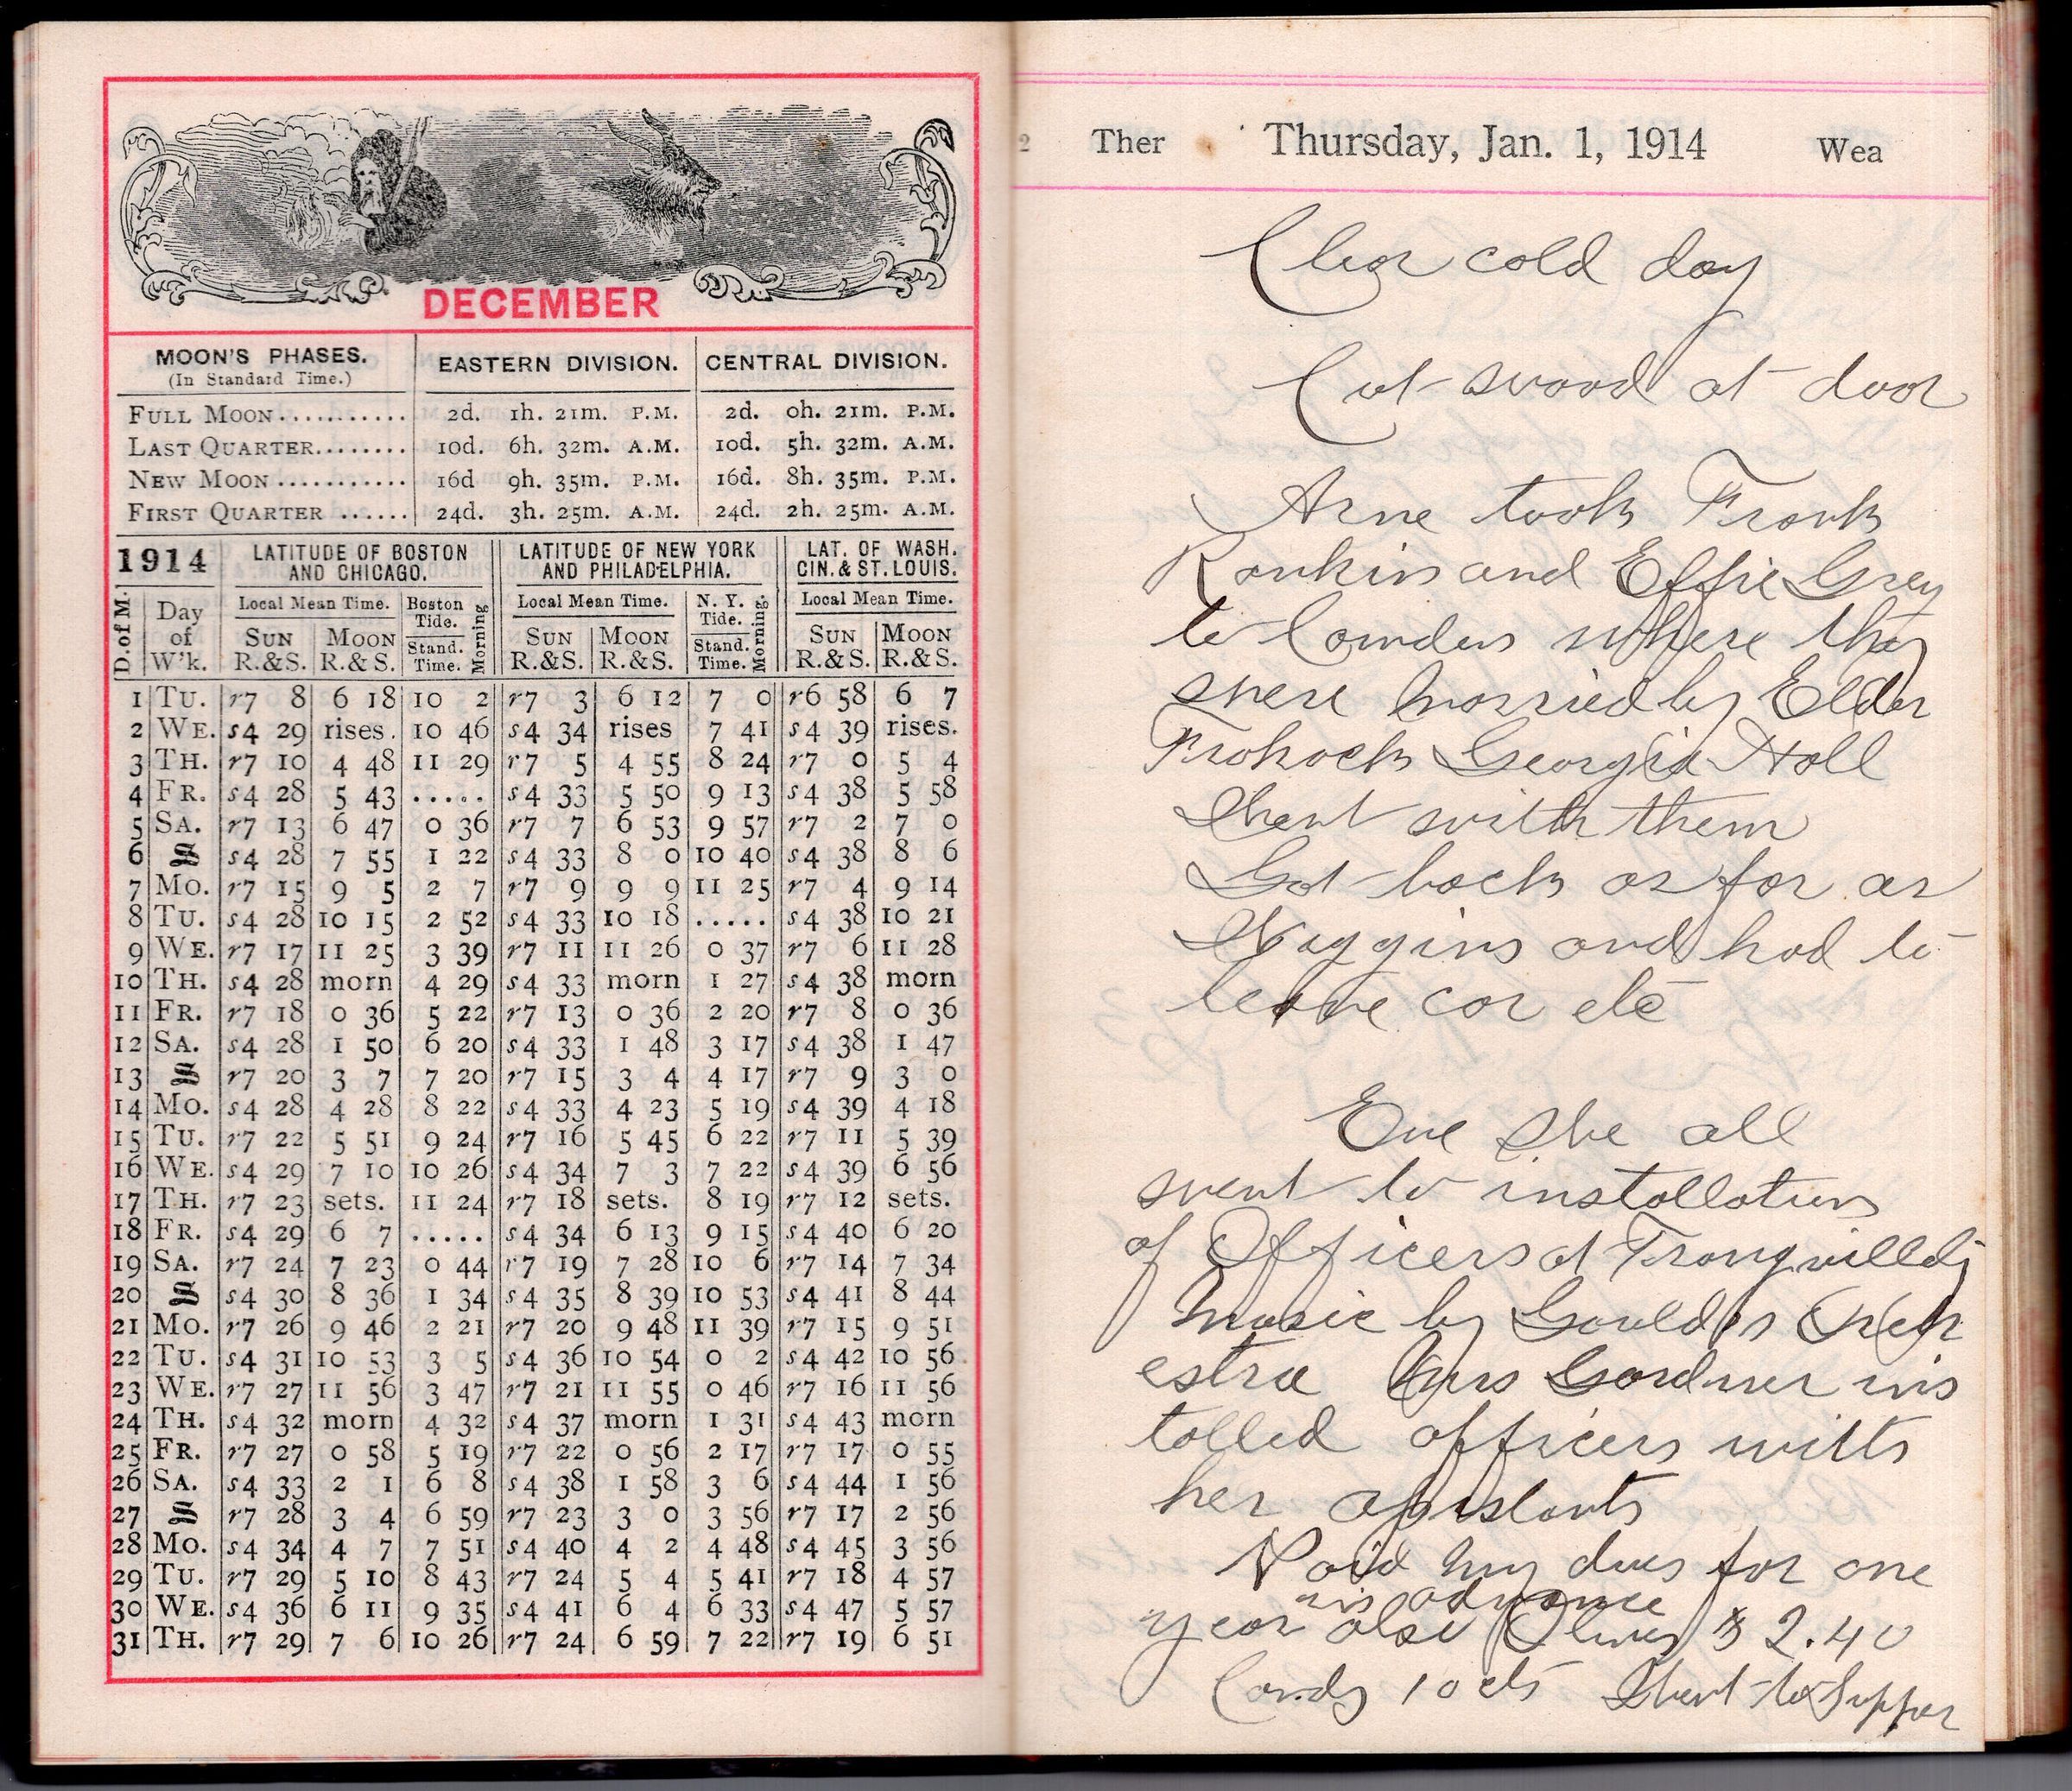 DECEMBER
MOON'S PHASES. EASTERN DIVISION. CENTRAL DIVISION.
(In Standard Time.)
FULL MOON........... 2d. 1h. 21m. P.M. 2d. 0h. 21m. P.M.
LAST QUARTER........ 10d. 6h. 32m. A.M. 10d. 5h. 32m. A.M.
NEW MOON........... 16d 9h. 35m. P.M. 16d. 8h. 35m. P.M.
FIRST QUARTER ...... 24d. 3h. 25m. A.M. 24d. 2h. 25m. A.M.
1914 LATITUDE OF BOSTON AND CHICAGO. LATITUDE OF NEW YORK AND PHILADELPHIA. LAT. OF WASH. CIN. & ST. LOUIS.
D. of M. Day of W'k. Local Mean Time. Boston Tide. Morning Local Mean Time. N. Y. Tide. Morning. Local Mean Time.
SUN R.&S. MOON R.&S. Stand. Time. SUN R.&S. MOON R.&S. Stand. Time. SUN R.&S. MOON R.&S.
1 TU. r7 8 6 18 10 2 r7 3 6 12 7 0 r6 58 6 7
2 WE. s4 29 rises. 10 46 s4 34 rises 7 41 s4 39 rises.
3 TH. r7 10 4 48 11 29 r7 5 4 55 8 24 r7 0 5 4
4 FR. s4 28 5 43 ..... s4 33 5 50 9 13 s4 38 5 58
5 SA. r7 13 6 47 0 36 r7 7 6 53 9 57 r7 2 7 0
6 S s4 28 7 55 1 22 s4 33 8 0 10 40 s4 38 8 6
7 MO. r7 15 9 5 2 7 r7 9 9 9 11 25 r7 4 9 14
8 TU. s4 28 10 15 2 52 s4 33 10 18 ..... s4 38 10 21
9 WE. r7 17 11 25 3 39 r7 11 11 26 0 37 r7 6 11 28
10 TH. s4 28 morn 4 29 s4 33 morn 1 27 s4 38 morn
11 FR. r7 18 0 36 5 22 r7 13 0 36 2 20 r7 8 0 36
12 SA. s4 28 1 50 6 20 s4 33 1 48 3 17 s4 38 1 47
13 S r7 20 3 7 7 20 r7 15 3 4 4 17 r7 9 3 0
14 MO. s4 28 4 28 8 22 s4 33 4 23 5 19 s4 39 4 18
15 TU. r7 22 5 51 9 24 r7 16 5 45 6 22 r7 11 5 39
16 WE. s4 29 7 10 10 26 s4 34 7 3 7 22 s4 39 6 56
17 TH. r7 23 sets. 11 24 r7 18 sets. 8 19 r7 12 sets.
18 FR. s4 29 6 7 ..... s4 34 6 13 9 15 s4 40 6 20
19 SA. r7 24 7 23 0 44 r7 19 7 28 10 6 r7 14 7 34
20 S s4 30 8 36 1 34 s4 35 8 39 10 53 s4 41 8 44
21 MO. r7 26 9 46 2 21 r7 20 9 48 11 39 r7 15 9 51
22 TU. s4 31 10 53 3 5 s4 36 10 54 0 2 s4 42 10 56
23 WE. r7 27 11 56 3 47 r7 21 11 55 0 46 r7 16 11 56
24 TH. s4 32 morn 4 32 s4 37 morn 1 31 s4 43 morn
25 FR. r7 27 0 58 5 19 r7 22 0 56 2 17 r7 17 0 55
26 SA. s4 33 2 1 6 8 s4 38 1 58 3 6 s4 44 1 56
27 S r7 28 3 4 6 59 r7 23 3 0 3 56 r7 17 2 56
28 MO. s4 34 4 7 7 51 s4 40 4 2 4 48 s4 45 3 56
29 TU. r7 29 5 10 8 43 r7 24 5 4 5 41 r7 18 4 57
30 WE. s4 36 6 11 9 35 s4 41 6 4 6 33 s4 47 5 57
31 TH. r7 29 7 6 10 26 r7 24 6 59 7 22 r7 19 6 51
Ther Thursday, Jan. 1, 1914 Wea
Clear cold day
Cut wood at door
Arne took Frank
Rankin and Effie Grey
to Camden where they
were married by Elder
Frohock Georgia Hall
Went with them
Got back as far as
Waggins and had to
leave car etc
Eve We all
went to installation
of Officers at Tranquillity
music by Gould's Orch
estra Mrs Gardner ins
talled officers with
her assistants
Paid my dues for one
year in advance also Olives $2.40
Candy 10 cts Went to Supper